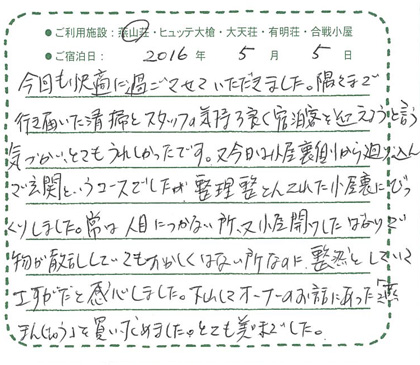 ●ご利用施設：燕山荘・ヒュッテ大槍・大天荘・有明荘・合戦小屋
●ご宿泊日： 2016 年 5 月 5 日
今回も快適に過ごさせていただきました。隅々まで
行き届いた清掃とスタッフの気持ち良く宿泊客を迎えようと言う
気づかい、とてもうれしかったです。又今回は小屋裏側から廻り込ん
で玄関というコースでしたが、整理整とんされた小屋裏にびっ
くりしました。常は人目につかない所、又小屋開けしたばかりで
物が散乱していてもおかしくはない所なのに、整然としていて
さすがだと感心しました。下山してオーナーのお話にあった
まんじゅう」を買い求めました。とても美味でした。